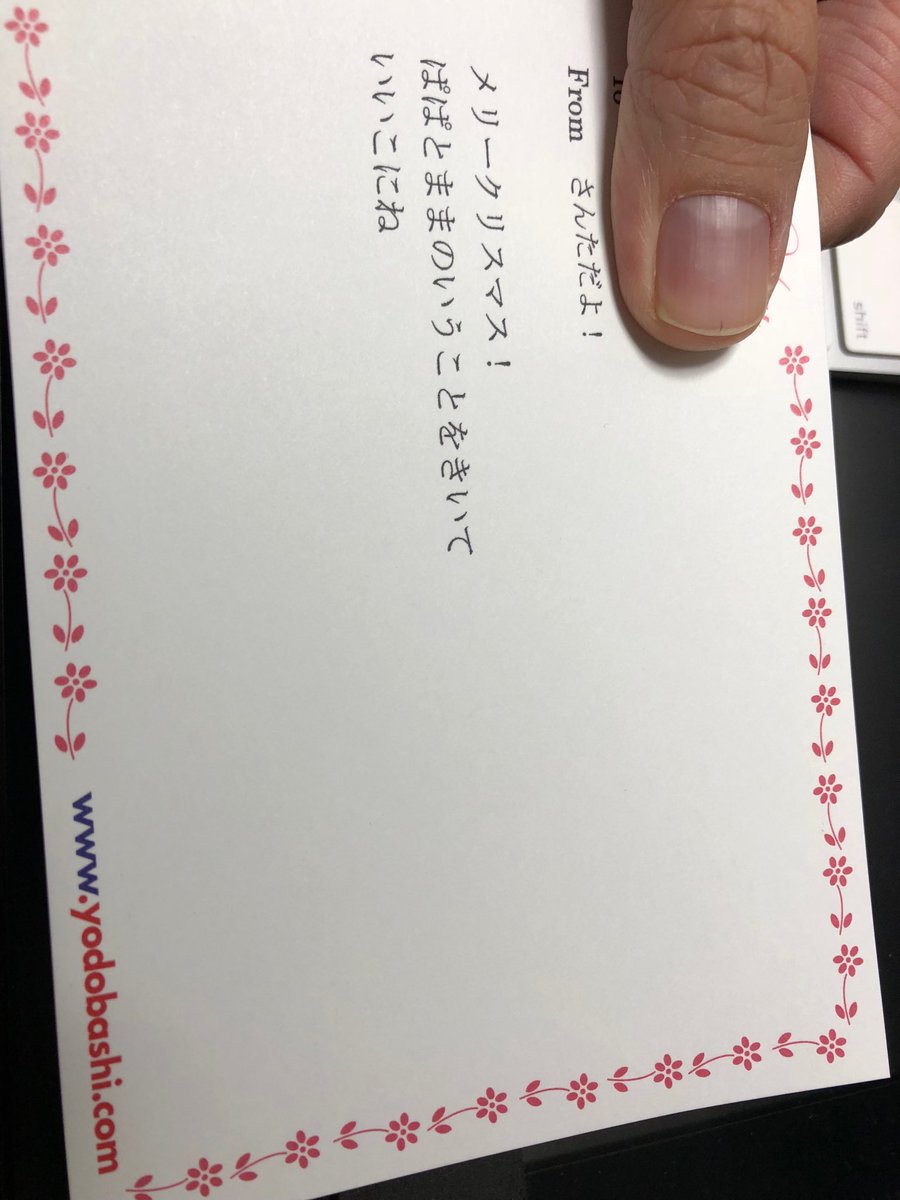 To
From さんただよ！
メリークリスマス！
ぱぱとままのいうことをきいて
いいこにね
www.yodobashi.com
shift